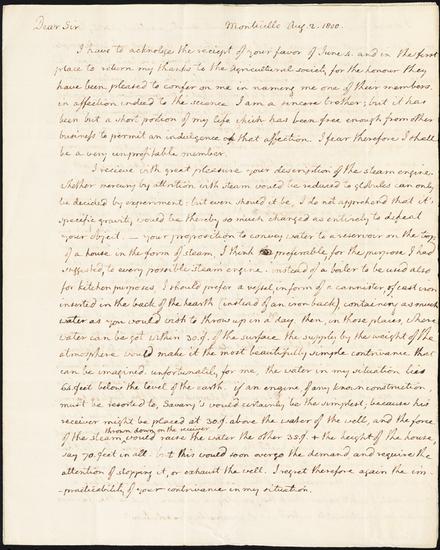 Dear Sir Monticello Aug. 2. 1800.
I have to acknolege the reciept of your favor of June 4. and in the first
place to return my thanks to the Agricultural society for the honour they
have been pleased to confer on me in naming me one of their members.
in affection indeed to the science I am a sincere brother; but it has
been but a short portion of my life which has been free enough from other
business to permit an indulgence of that affection. I fear therefore I shall
be a very unprofitable member.
I recieve with great pleasure your description of the steam engine.
whether mercury by attrition with steam would be reduced to globules can only
be decided by experiment: but even should it be, I do not apprehend that it's
specific gravity would be thereby so much changed as entirely to defeat
your object. — your proposition to convey water to a reservoir on the top
of a house in the form of steam, I think preferable, for the purpose I had
suggested, to every possible steam engine. instead of a boiler to be used also
for kitchen purposes, I should prefer a vessel in form of a cannister of cast iron
inserted in the back of the hearth (instead of an iron back) containing as much
water as you would wish to throw up in a day. then, in those places, where
water can be got within 30.f. of the surface the supply by the weight of the
atmosphere would make it the most beautifully simple contrivance that
can be imagined. unfortunately, for me, the water in my situation lies
65 feet below the level of the earth. if an engine of any known construction
must be resorted to, Savary's would certainly be the simplest, because his
reciever might be placed at 30.f. above the water of the well, and the force
thrown down on the reciever
of the steam, would raise the water the other 35.f. + the height of the house,
say 70. feet in all. but this would soon overgo the demand and require the
attention of stopping it, or exhaust the well. I regret therefore again the im-
-practicability of your contrivance in my situation.